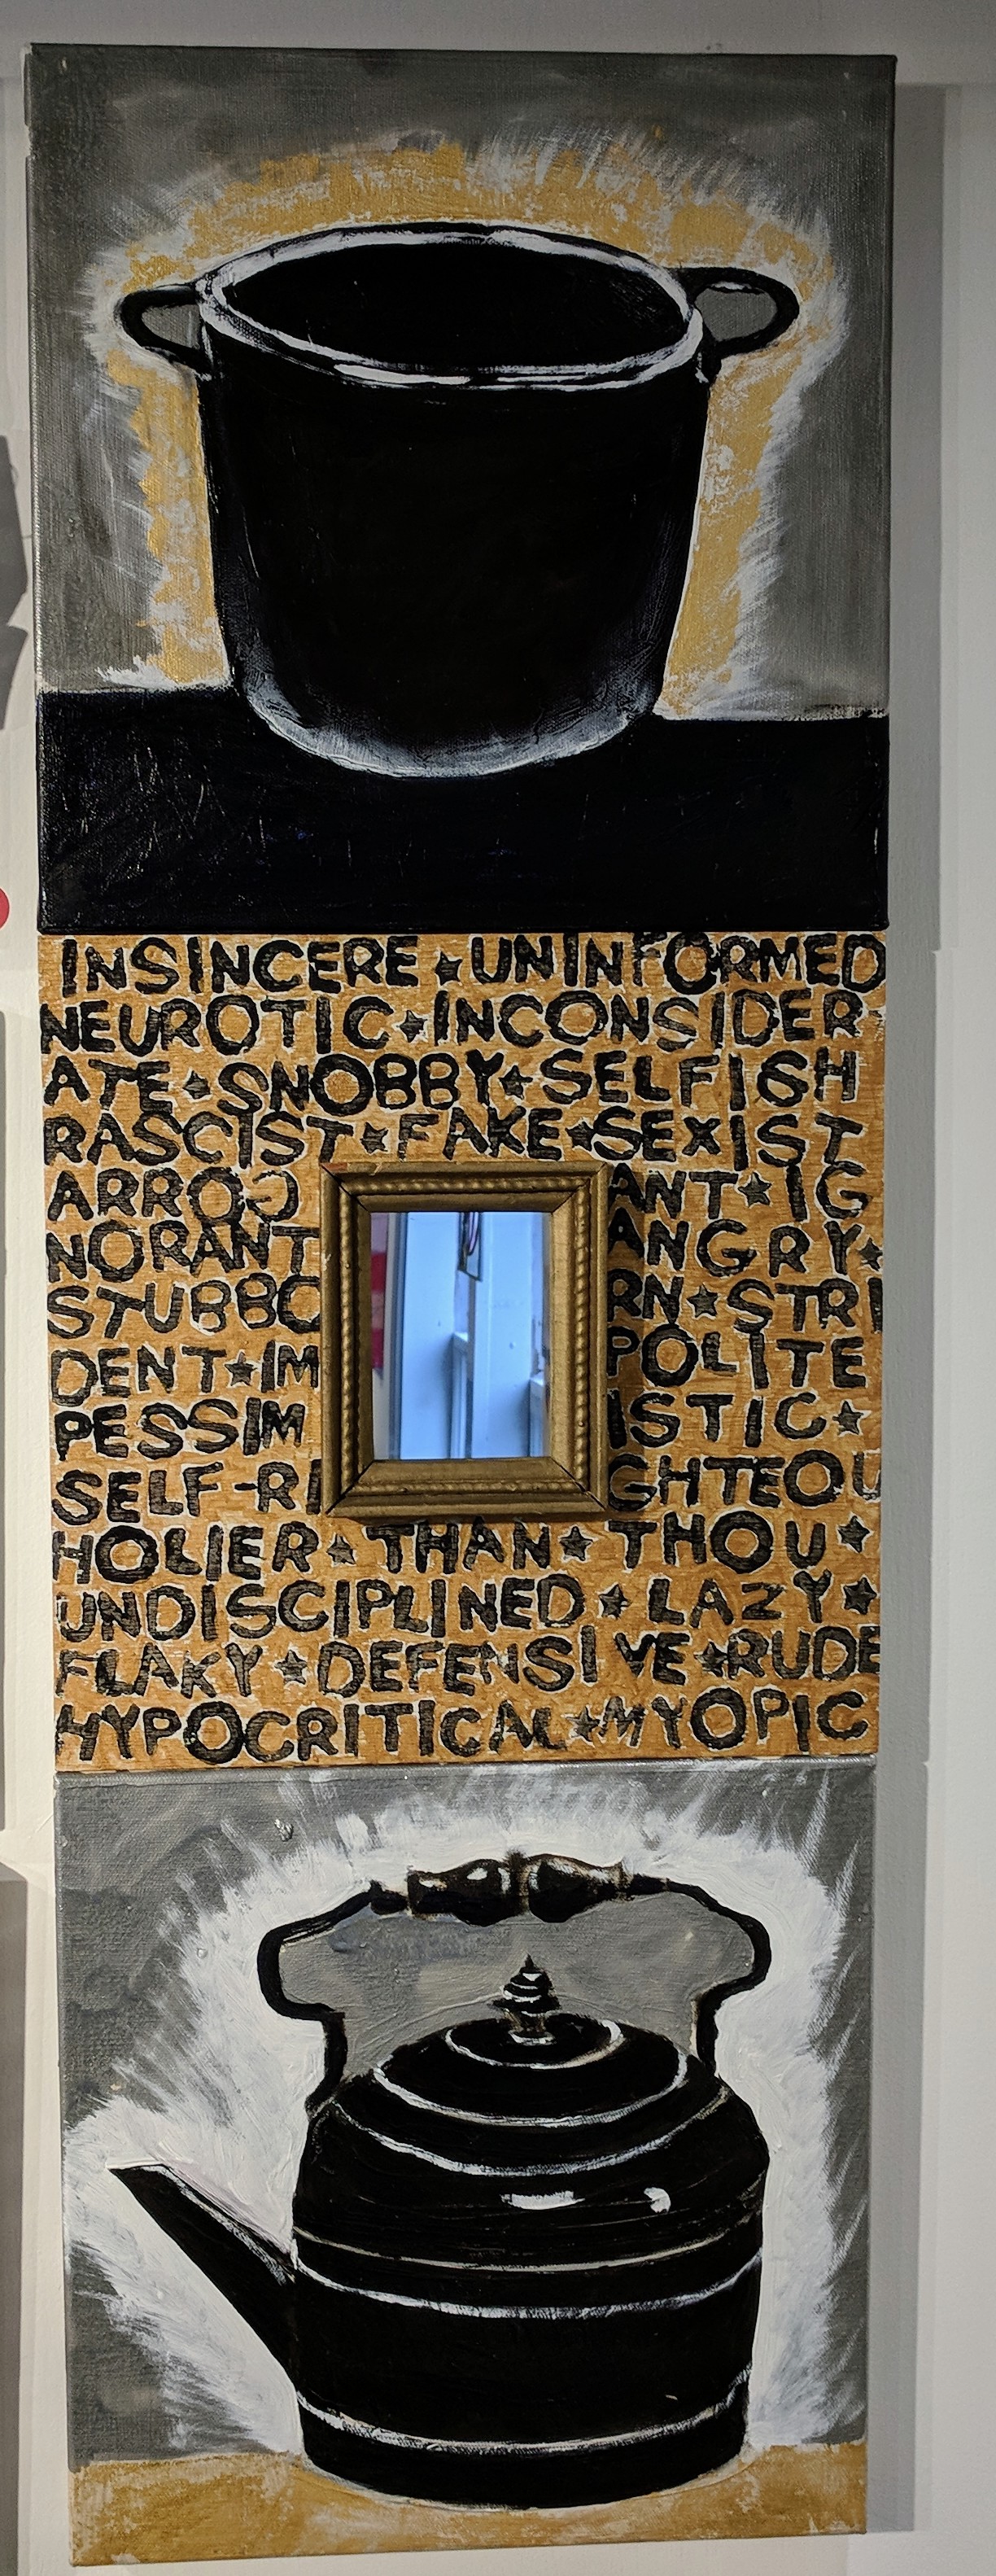 INSINCERE ★ UNINFORMED
NEUROTIC ★ INCONSIDER
ATE ★ SNOBBY ★ SELFISH
RASCIST ★ FAKE ★ SEXIST
ARROG ANT ★ IG
NORANT ANGRY ★
STUBBO RN ★ STRI
DENT ★ IM POLITE
PESSIM ISTIC ★
SELF-RI GHTEOU
HOLIER ★ THAN ★ THOU ★
UNDISCIPLINED ★ LAZY ★
FLAKY ★ DEFENSIVE ★ RUDE
HYPOCRITICAL ★ MYOPIC